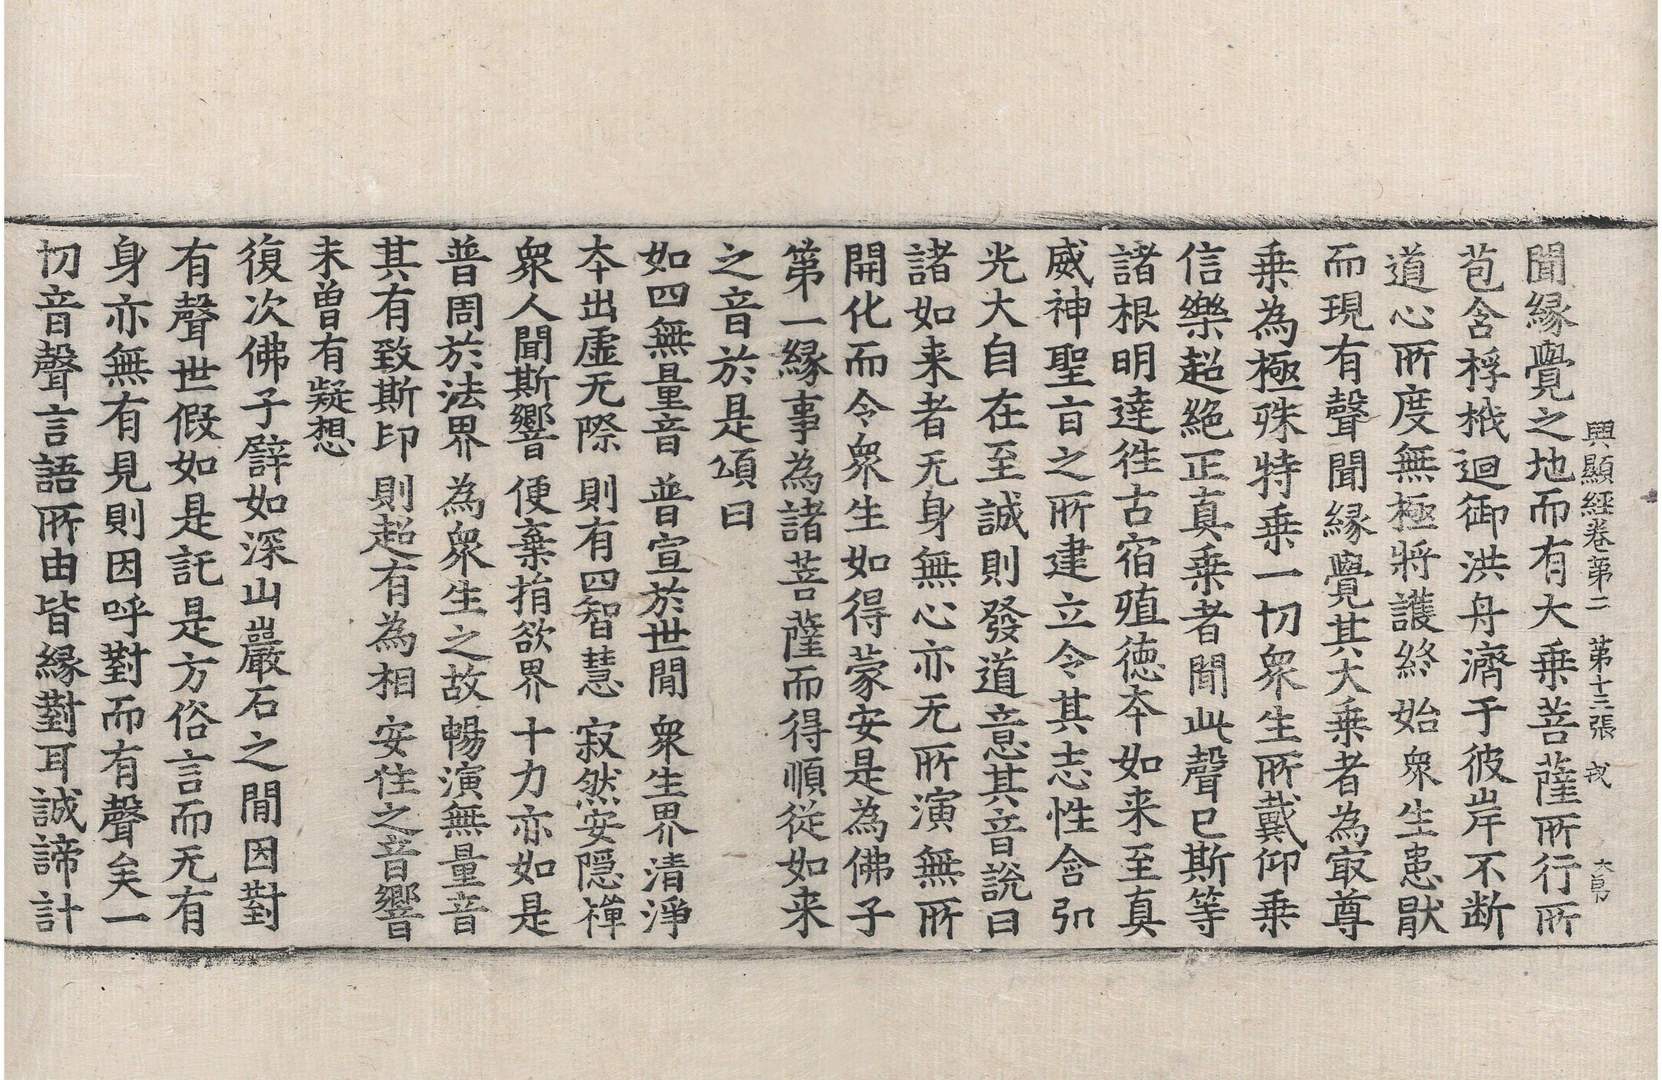 興顯經卷第二 第十三張 戎
聞緣覺之地而有大乗菩薩所行所
苞含桴栰迴御洪舟濟于彼岸不断
道心所度無極將護終始衆生患猒
而現有聲聞緣覺其大乗者為㝡尊
乗為極殊特乗一切衆生所戴仰乗
信樂超絶正真乗者聞此聲已斯等
諸根明達徃古宿殖徳夲如来至真
威神聖旨之所建立令其志性含弘
光大自在至誠則發道意其音說曰
諸如来者无身無心亦无所演無所
開化而令衆生如得蒙安是為佛子
第一緣事為諸菩薩而得順從如来
之音於是頌曰
如四無量音 普宣於世間 衆生界清淨
夲出虛无際 則有四智慧 寂然安隱禪
衆人聞斯響 便棄捐欲界 十力亦如是
普周於法界 為衆生之故 暢演無量音
其有致斯印 則超有為相 安住之音響
未曽有疑想
復次佛子譬如深山巖石之間因對
有聲世假如是託是方俗言而无有
身亦無有見則因呼對而有聲矣一
切音聲言語所由皆緣對耳誠諦計